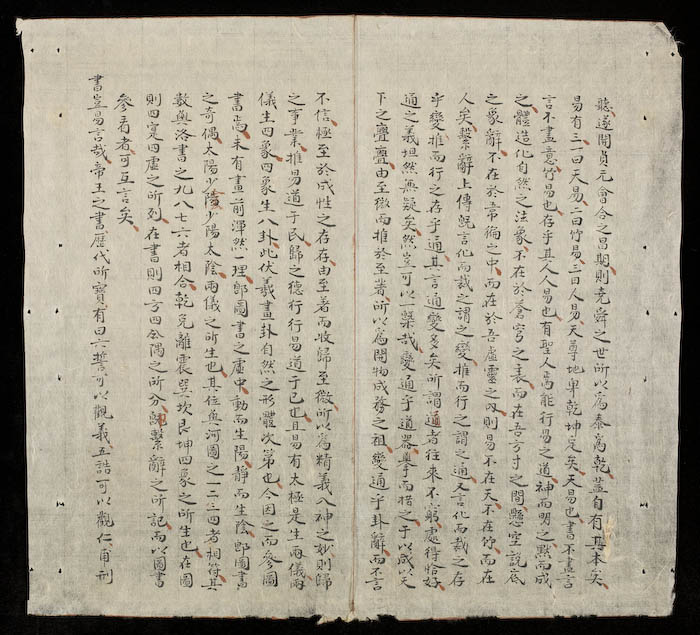 聽遂開貞元會合之昌期則堯舜之世所以爲泰爲乾蓋自有其本矣
易有三一曰天易二曰竹易三曰人易天尊地卑乾坤定矣天易也書不盡言
言不盡意竹易也存乎其人人易也有聖人焉能行易之道神而明之默而成
之體造化自然之法象不在於蒼穹之表而在吾方寸之間懸空說底
之象辭不在於韋編之中而在於吾虛靈之內則易不在天不在竹而在
人矣繫辭上傳旣言化而裁之謂之變推而行之謂之通又言化而裁之存
乎變推而行之存乎通其言通變多矣所謂通者往來不窮處得恰好
通之義坦然無疑矣然豈可以一槩哉變通乎道器擧而措之于以成以天
下之亹亹由至微而推於至著所以爲開物成務之祖變通乎卦辭而不言
不信極至於成性之存存由至著而收歸至微所以爲精義入神之妙則歸
之事業推易道于民歸之德行行易道于己也且易有太極是生兩儀兩
儀生四象四象生八卦此伏羲畫卦自然之形體次第也今因之而參圖
書尚未有畫前渾然一理卽圖書之虛中動而生陽靜而生陰卽圖書
之奇偶太陽少陰少陽太陰兩儀之所生也其位與河圖之一二三四者相符其
數與洛書之九八七六者相合乾兌離震巽坎艮坤四象之所生也在圖
則四實四虛之所列在書則四方四隅之所分繫辭之所記而以圖書
參看者可互言矣
書豈易言哉帝王之書歷代所寶有曰六誓可以觀義五誥可以觀仁甫刑